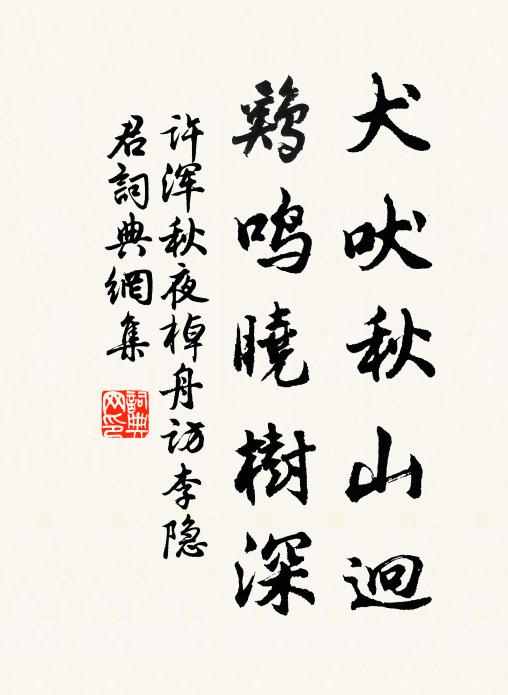 犬吠秋山迥
鷄鸣曉樹深
许浑秋夜棹舟访李隐
君詞典網集
詞典网印